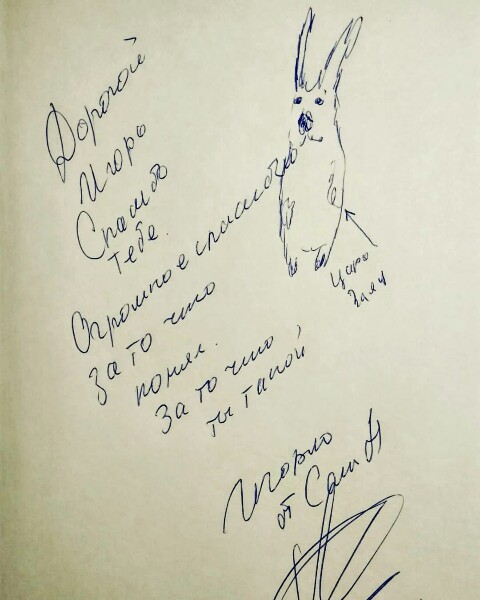 Дорогой
Игорь
Спасибо
тебе.
Огромное спасибо
За то что
понял.
За то что
ты такой
Царь
Заяц
от Саши